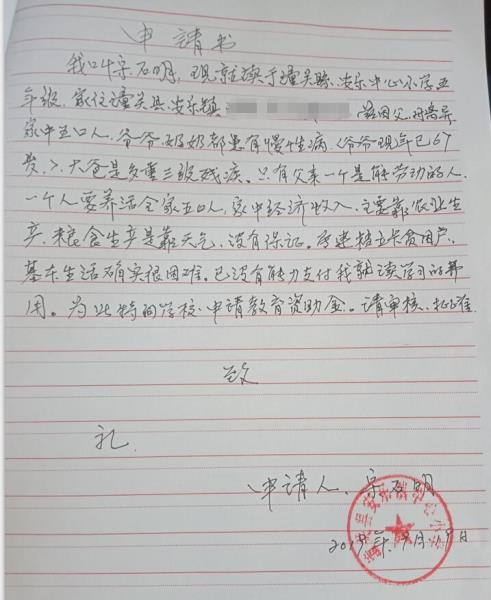 申请书
我叫宋石明，现就读于潼关县安乐中心小学五
年级，家住潼关县安乐镇 兹因父母离异
家中五口人，爷爷奶奶都患有慢性病（爷爷现年已67
岁），大爸是多重三级残疾。只有父亲一个是能劳动的人，
一个人要养活全家五口人，家中经济收入，主要靠农业生
产，粮食生产是靠天气，没有保证。属建档立卡贫困户，
基本生活确实很困难。已没有能力支付我就读学习的费
用。为此特向学校申请教育资助金。请审核、批准
致
礼
申请人：宋石明
2019年9月19日